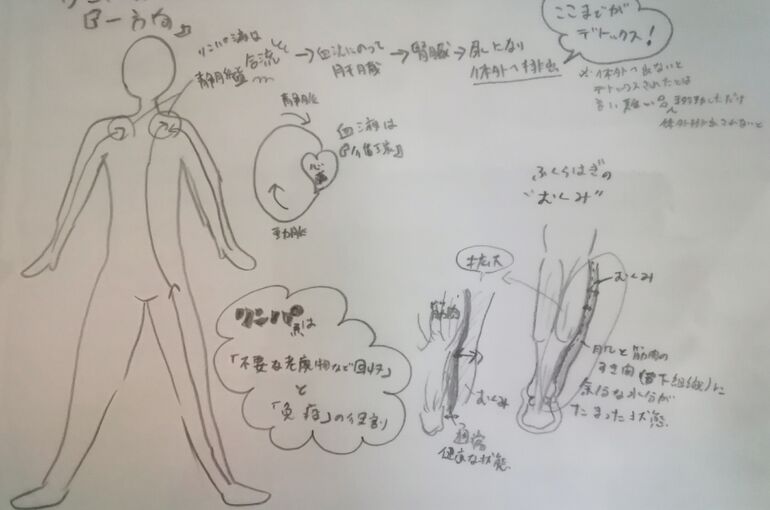 『一方向』
リンパ液は
静脈に合流して
→血液にのって
肝臓
→腎臓→尿となり
体外へ排出
ここまでが
デトックス!
※体外へ出ないと
デトックスされたとは
言い難い
移動しただけ
体外排出されないと
静脈
血液は
心臓
動脈
ふくらはぎの
"むくみ"
拡大
むくみ
筋肉
肌と筋肉の
すき間(皮下組織)に
余分な水分が
たまった状態
むくみ
通常
健康な状態
リンパ
は
「不要な老廃物など回収」
と
「免疫」の役割